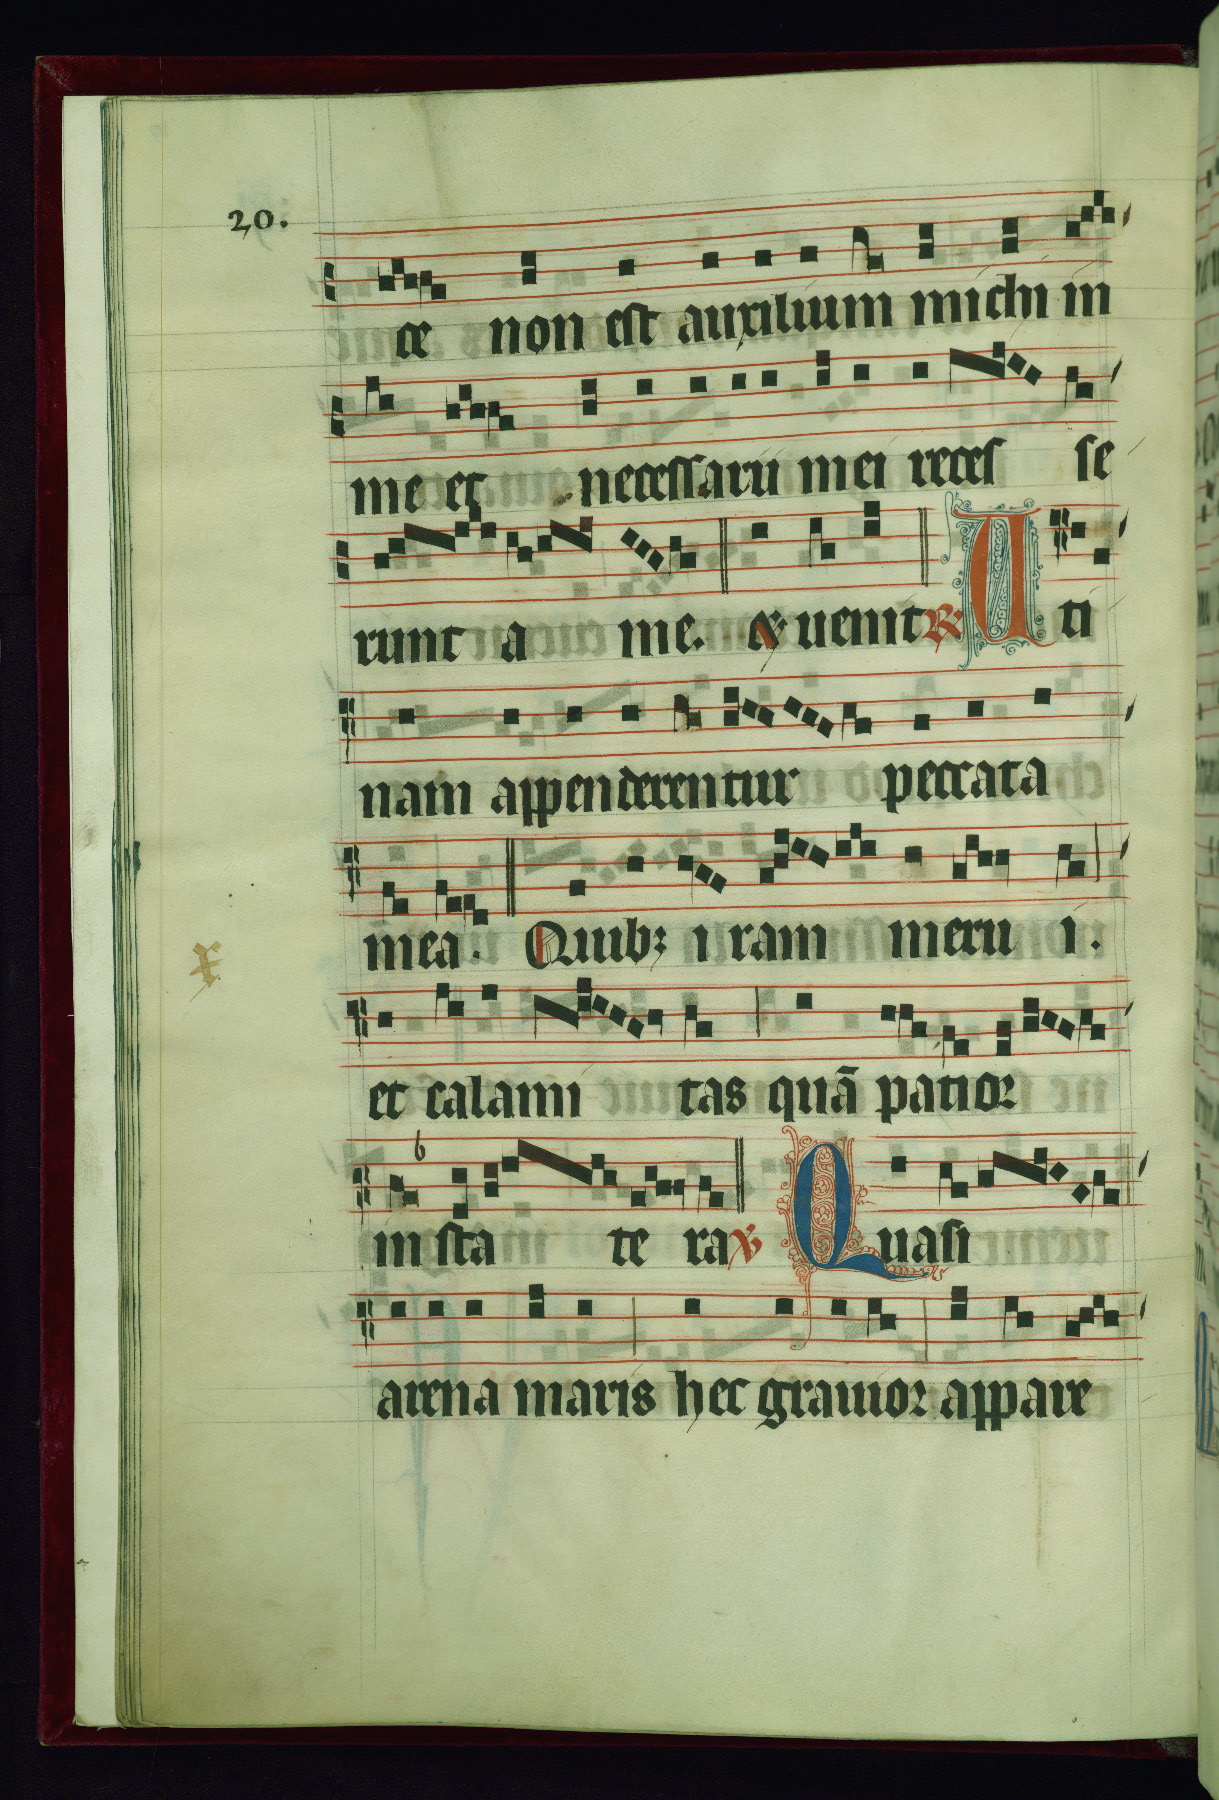 20.
ce non est auxilium michi in
me et necessarii mei reces se
runt a me. Et uenit R Uti
nam appenderentur peccata
mea. Quibꝫ iram meru i.
et calami tas quā patior
in sta te ra V Quasi
arena maris hec grauior appare